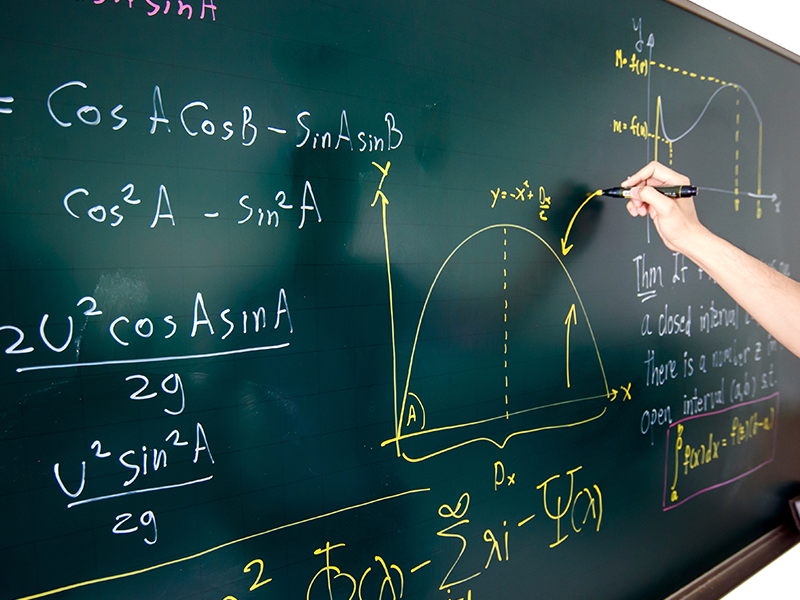 = Cos A CosB - SinA sinB
Cos² A - sin² A
2U² cosA sinA
2g
U² sin² A
2g
y
y = -x² + Dx/2
A
x
Dx
² Φ(λ) - ∞ Σ λi - Ψ(λ)
y
M = f(
m = f(
b
x
Thm If
a closed interval
there is a number z
open interval (a,b) s.t.
∫ b a f(x)dx = f(z)(b-a)